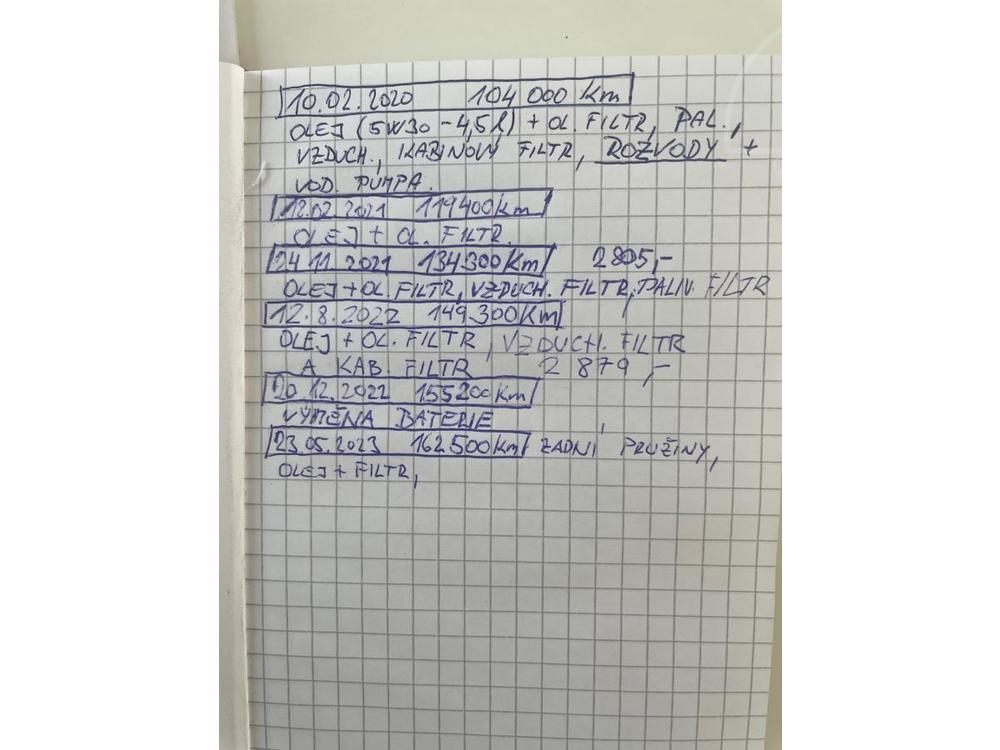 10.02.2020 104 000 km
OLEJ (5W30 - 4,5l) + OL. FILTR, PAL.,
VZDUCH., KABINOVÝ FILTR, ROZVODY +
VOD. PUMPA.
18.02.2021 119400km
OLEJ + OL. FILTR.
24 11.2021 134300Km 2805,-
OLEJ + OL. FILTR, VZDUCH. FILTR, PALIV. FILTR
12.8.2022 149.300Km
OLEJ + OL. FILTR, VZDUCH. FILTR
A KAB. FILTR 2 879,-
20.12.2022 155200km
VÝMĚNA BATERIE
23.05.2023 162500km ZADNÍ PRUŽINY,
OLEJ + FILTR,